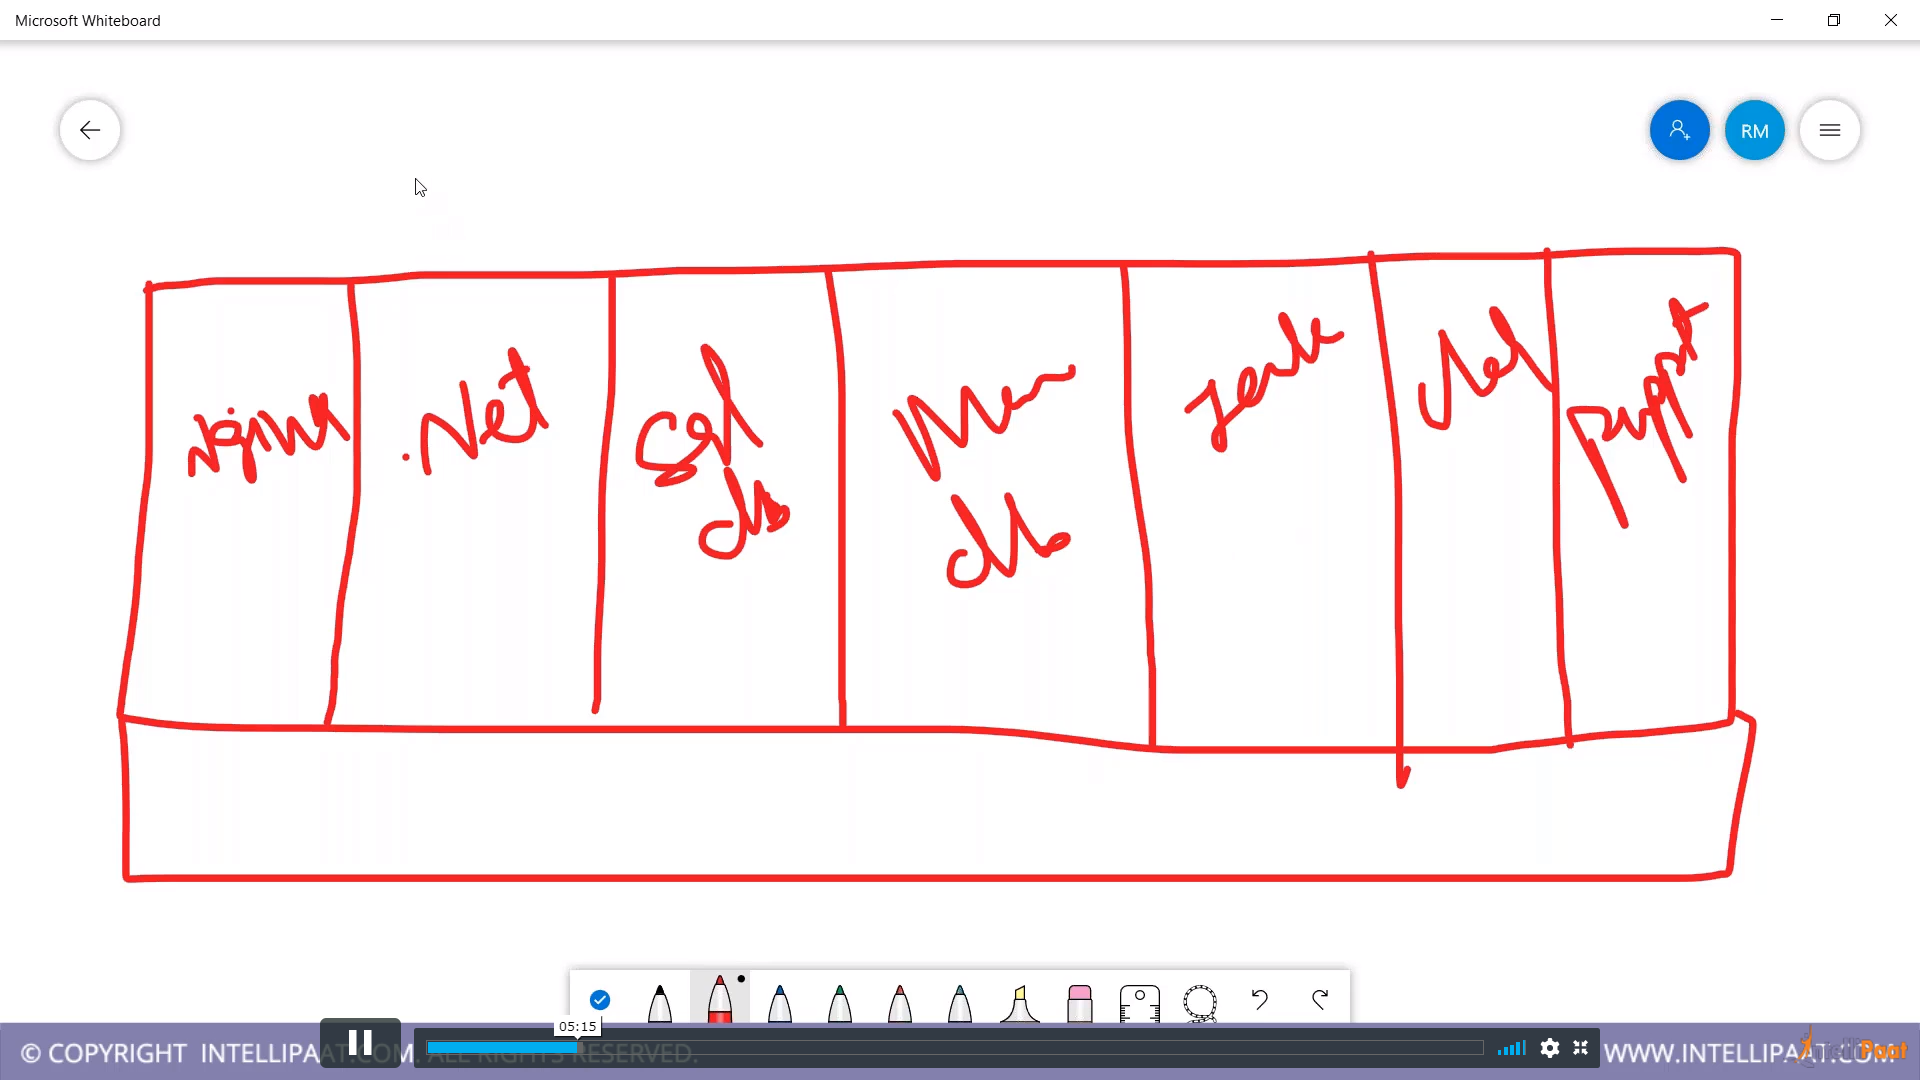 Microsoft Whiteboard
RM
Nginx
.Net
Sql
db
db
puppt
05:15
© COPYRIGHT INTELLIPAAT.COM. ALL RIGHTS RESERVED.
WWW.INTELLIPAAT.COM
IntelliPaat